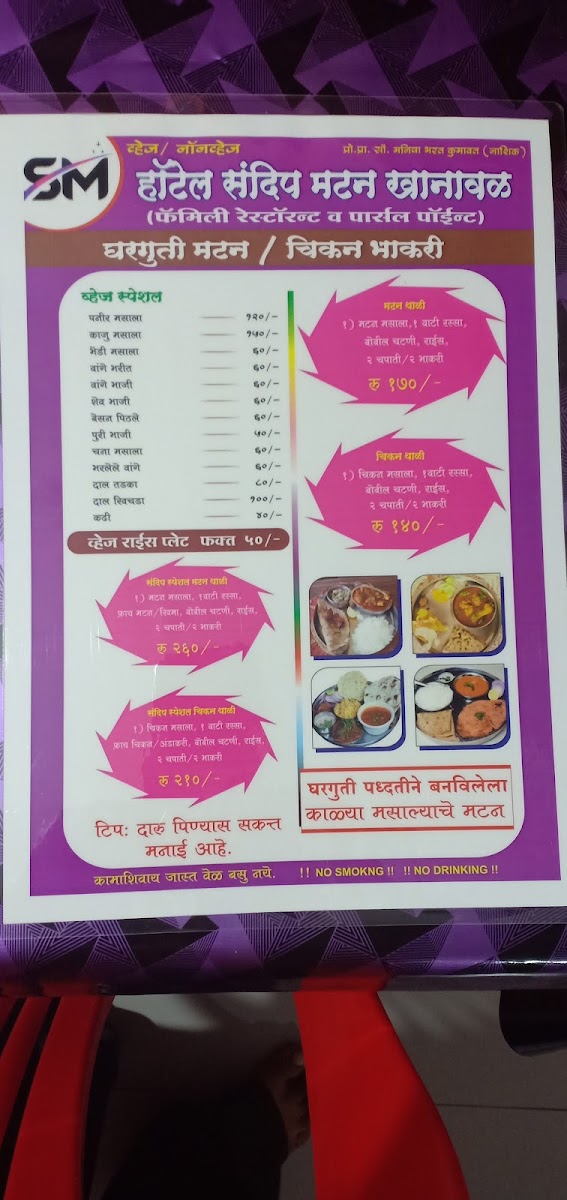 SM
व्हेज/ नॉनव्हेज
प्रो.प्रा. सौ. मनिषा भरत कुमावत (नाशिक)
हॉटेल संदिप मटन खानावळ
(फॅमिली रेस्टॉरन्ट व पार्सल पॉईन्ट)
घरगुती मटन / चिकन भाकरी
व्हेज स्पेशल
पनीर मसाला १२०/-
काजु मसाला १५०/-
भेंडी मसाला ६०/-
वांगे भरीत ६०/-
वांगे भाजी ६०/-
शेव भाजी ६०/-
बेसन पिठले ६०/-
पुरी भाजी ५०/-
चना मसाला ६०/-
भरलेले वांगे ६०/-
दाल तडका ८०/-
दाल खिचडा १००/-
कढी ४०/-
व्हेज राईस प्लेट फक्त ५०/-
संदिप स्पेशल मटन थाळी
१) मटन मसाला, १वाटी रस्सा,
फ्राय मटन/खिमा, बोंबील चटणी, राईस,
२ चपाती/२ भाकरी
रु २६०/-
संदिप स्पेशल चिकन थाळी
१) चिकन मसाला, १ वाटी रस्सा,
फ्राय चिकन/अंडाकरी, बोंबील चटणी, राईस,
२ चपाती/२ भाकरी
रु २१०/-
टिप: दारु पिण्यास सक्त
मनाई आहे.
मटन थाळी
१) मटन मसाला,१ वाटी रस्सा,
बोंबील चटणी, राईस,
२ चपाती/२ भाकरी
रु १७०/-
चिकन थाळी
१) चिकन मसाला, १वाटी रस्सा,
बोंबील चटणी, राईस,
२ चपाती/२ भाकरी
रु १४०/-
घरगुती पध्दतीने बनविलेला
काळ्या मसाल्याचे मटन
कामाशिवाय जास्त वेळ बसु नये. !! NO SMOKNG !! !! NO DRINKING !!